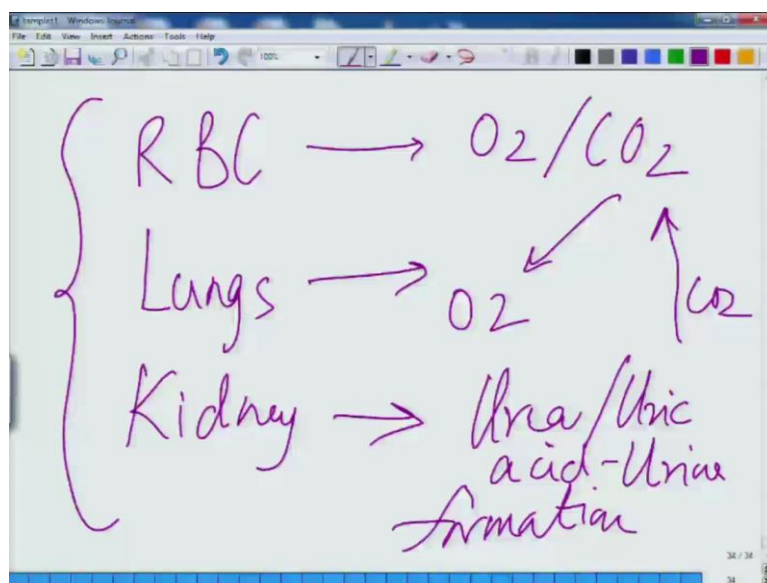 templet1 Windows Journal
File Edit View Insert Actions Tools Help
100%
RBC → O2/CO2
Lungs → O2 CO2
Kidney → Urea/Uric
acid-Urine
formation
34/34
34